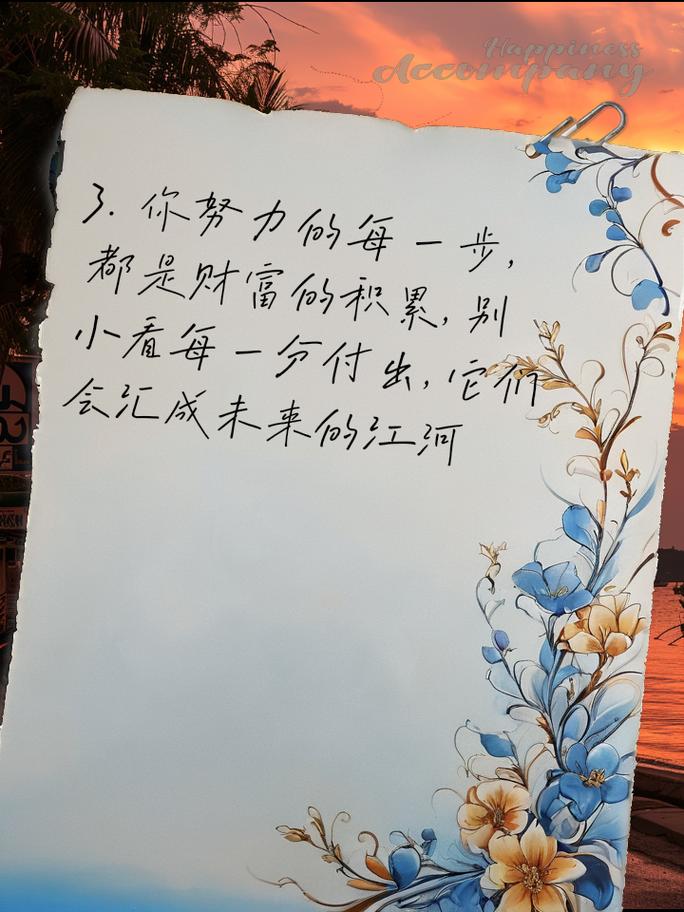 Happiness
Accompany
3. 你努力的每一步,
都是财富的积累, 别
小看每一分付出, 它们
会汇成未来的江河